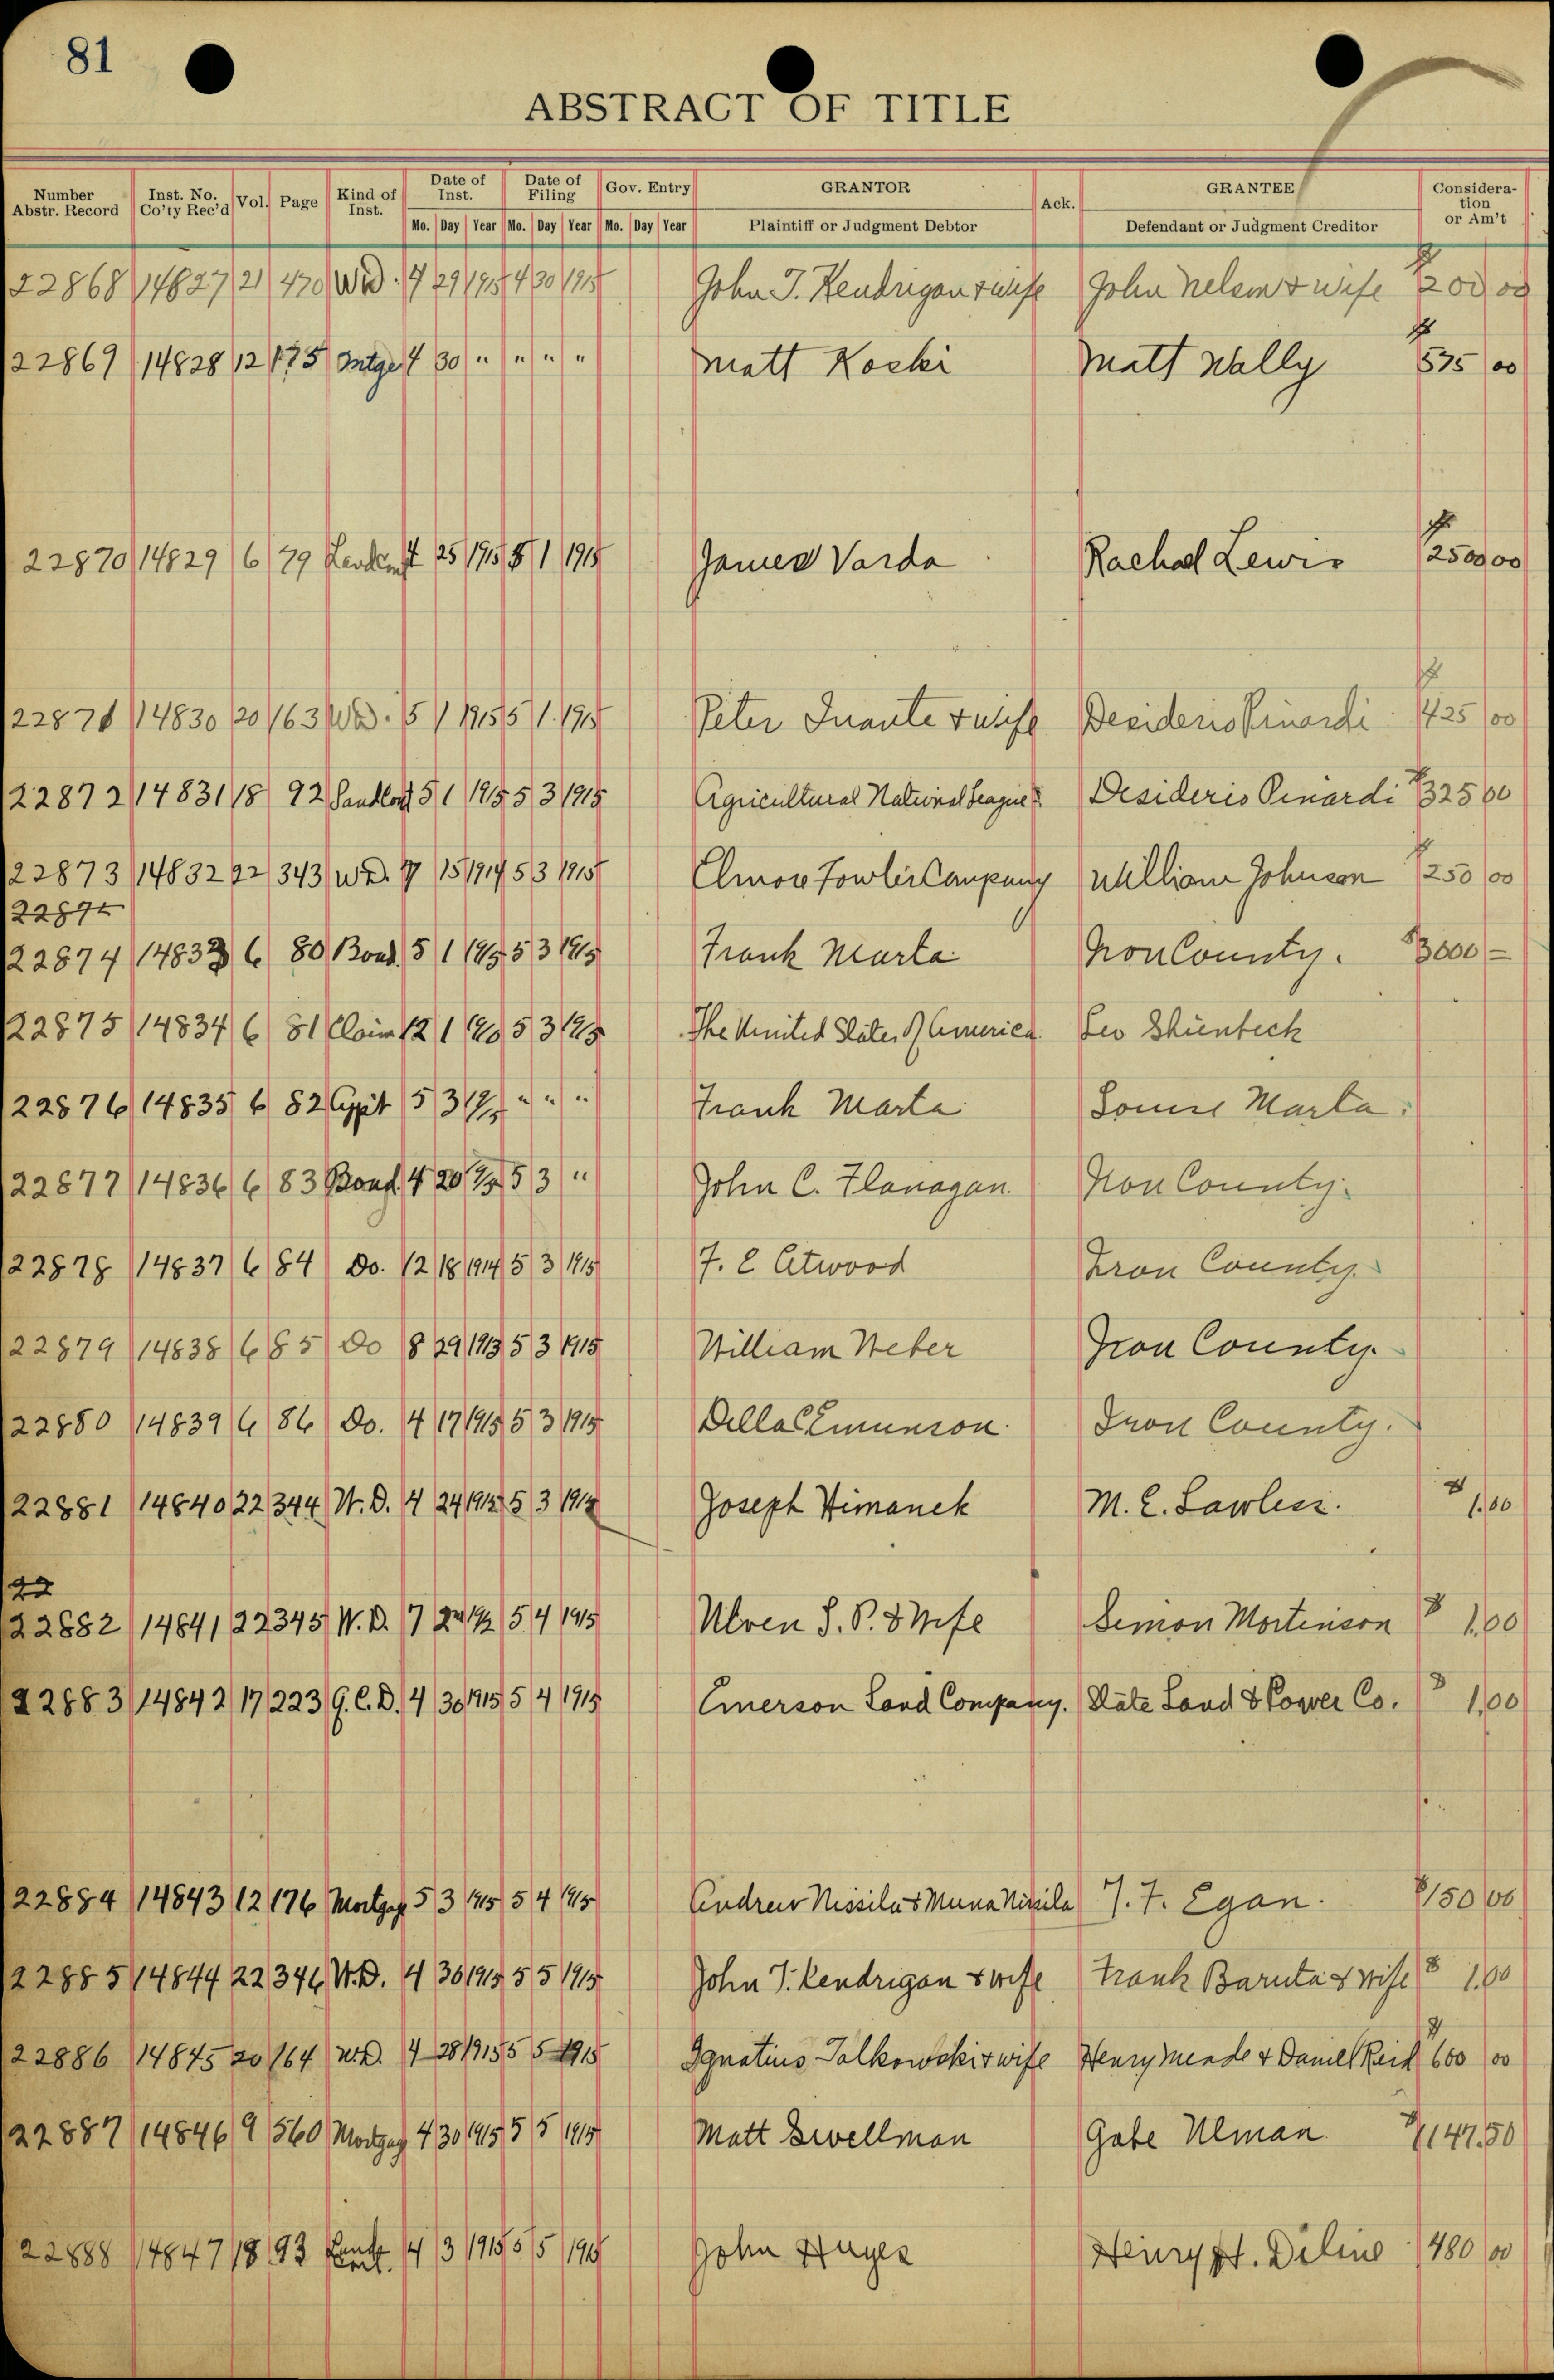 81
ABSTRACT OF TITLE
Number Abstr. Record Inst. No. Co'ty Rec'd Vol. Page Kind of Inst. Date of Inst. Date of Filing Gov. Entry GRANTOR Ack. GRANTEE Consideration or Am't
Mo. Day Year Mo. Day Year Mo. Day Year Plaintiff or Judgment Debtor Defendant or Judgment Creditor
22868 14827 21 470 W.D. 4 29 1915 4 30 1915 John T. Kendrigan & wife John Nelson & wife $ 200 00
22869 14828 12 175 Mtge 4 30 " " " " Matt Koski Matt Wally $ 575 00
22870 14829 6 79 4 25 1915 5 1 1915 James Varda Rachel Lewis $ 2500 00
22871 14830 20 163 W.D. 5 1 1915 5 1 1915 Peter & wife Desiderio Pinardi $ 425 00
22872 14831 18 92 Land Cont 5 1 1915 5 3 1915 Agricultural National League Desiderio Pinardi $ 325 00
22873 14832 22 343 W.D. 15 1914 5 3 1915 Elmore Fowler Company William Johnson $ 250 00
22874 14833 6 80 Bond 5 1 1915 5 3 1915 Frank Marta Iron County. $3000 =
22875 14834 6 81 Claim 12 1 5 3 1915 The United States of America Leo
22876 14835 6 82 5 3 1915 " " " Frank Marta Louise Marta.
22877 14836 6 83 Bond 4 20 5 3 " John C. Flanagan. Iron County.
22878 14837 6 84 Do. 12 18 1914 5 3 1915 F. E Atwood Iron County.
22879 14838 6 85 Do 8 29 1913 5 3 1915 William Weber Iron County.
22880 14839 6 86 Do. 4 17 1915 5 3 1915 Della Emunson. Iron County.
22881 14840 22 344 W.D. 4 24 5 3 Joseph Himanek M. E. Lawless. $ 1.00
22
22882 14841 22 345 W.D. 7 5 4 1915 Ulven S. P. & Wife Simon Mortenson $ 1.00
22883 14842 17 223 Q.C.D. 4 30 1915 5 4 1915 Emerson Land Company. State Land & Power Co. $ 1.00
22884 14843 12 176 Mortgage 5 3 1915 5 4 1915 Andrew Nissila & Nissila J. F. Egan. $150 00
22885 14844 22 346 W.D. 4 30 1915 5 5 1915 John T. Kendrigan & wife Frank Baruta & wife $ 1.00
22886 14845 20 164 W.D. 4 28 1915 5 5 1915 Ignatius Talkowski & wife Henry Meade & Daniel Reid $ 600 00
22887 14846 9 560 Mortgag 4 30 1915 5 5 1915 Matt Swellman Gabe Ulman $1147.50
22888 14847 18 93 Land Cont. 4 3 1915 5 5 1915 John Huges Henry H. Diline 480 00